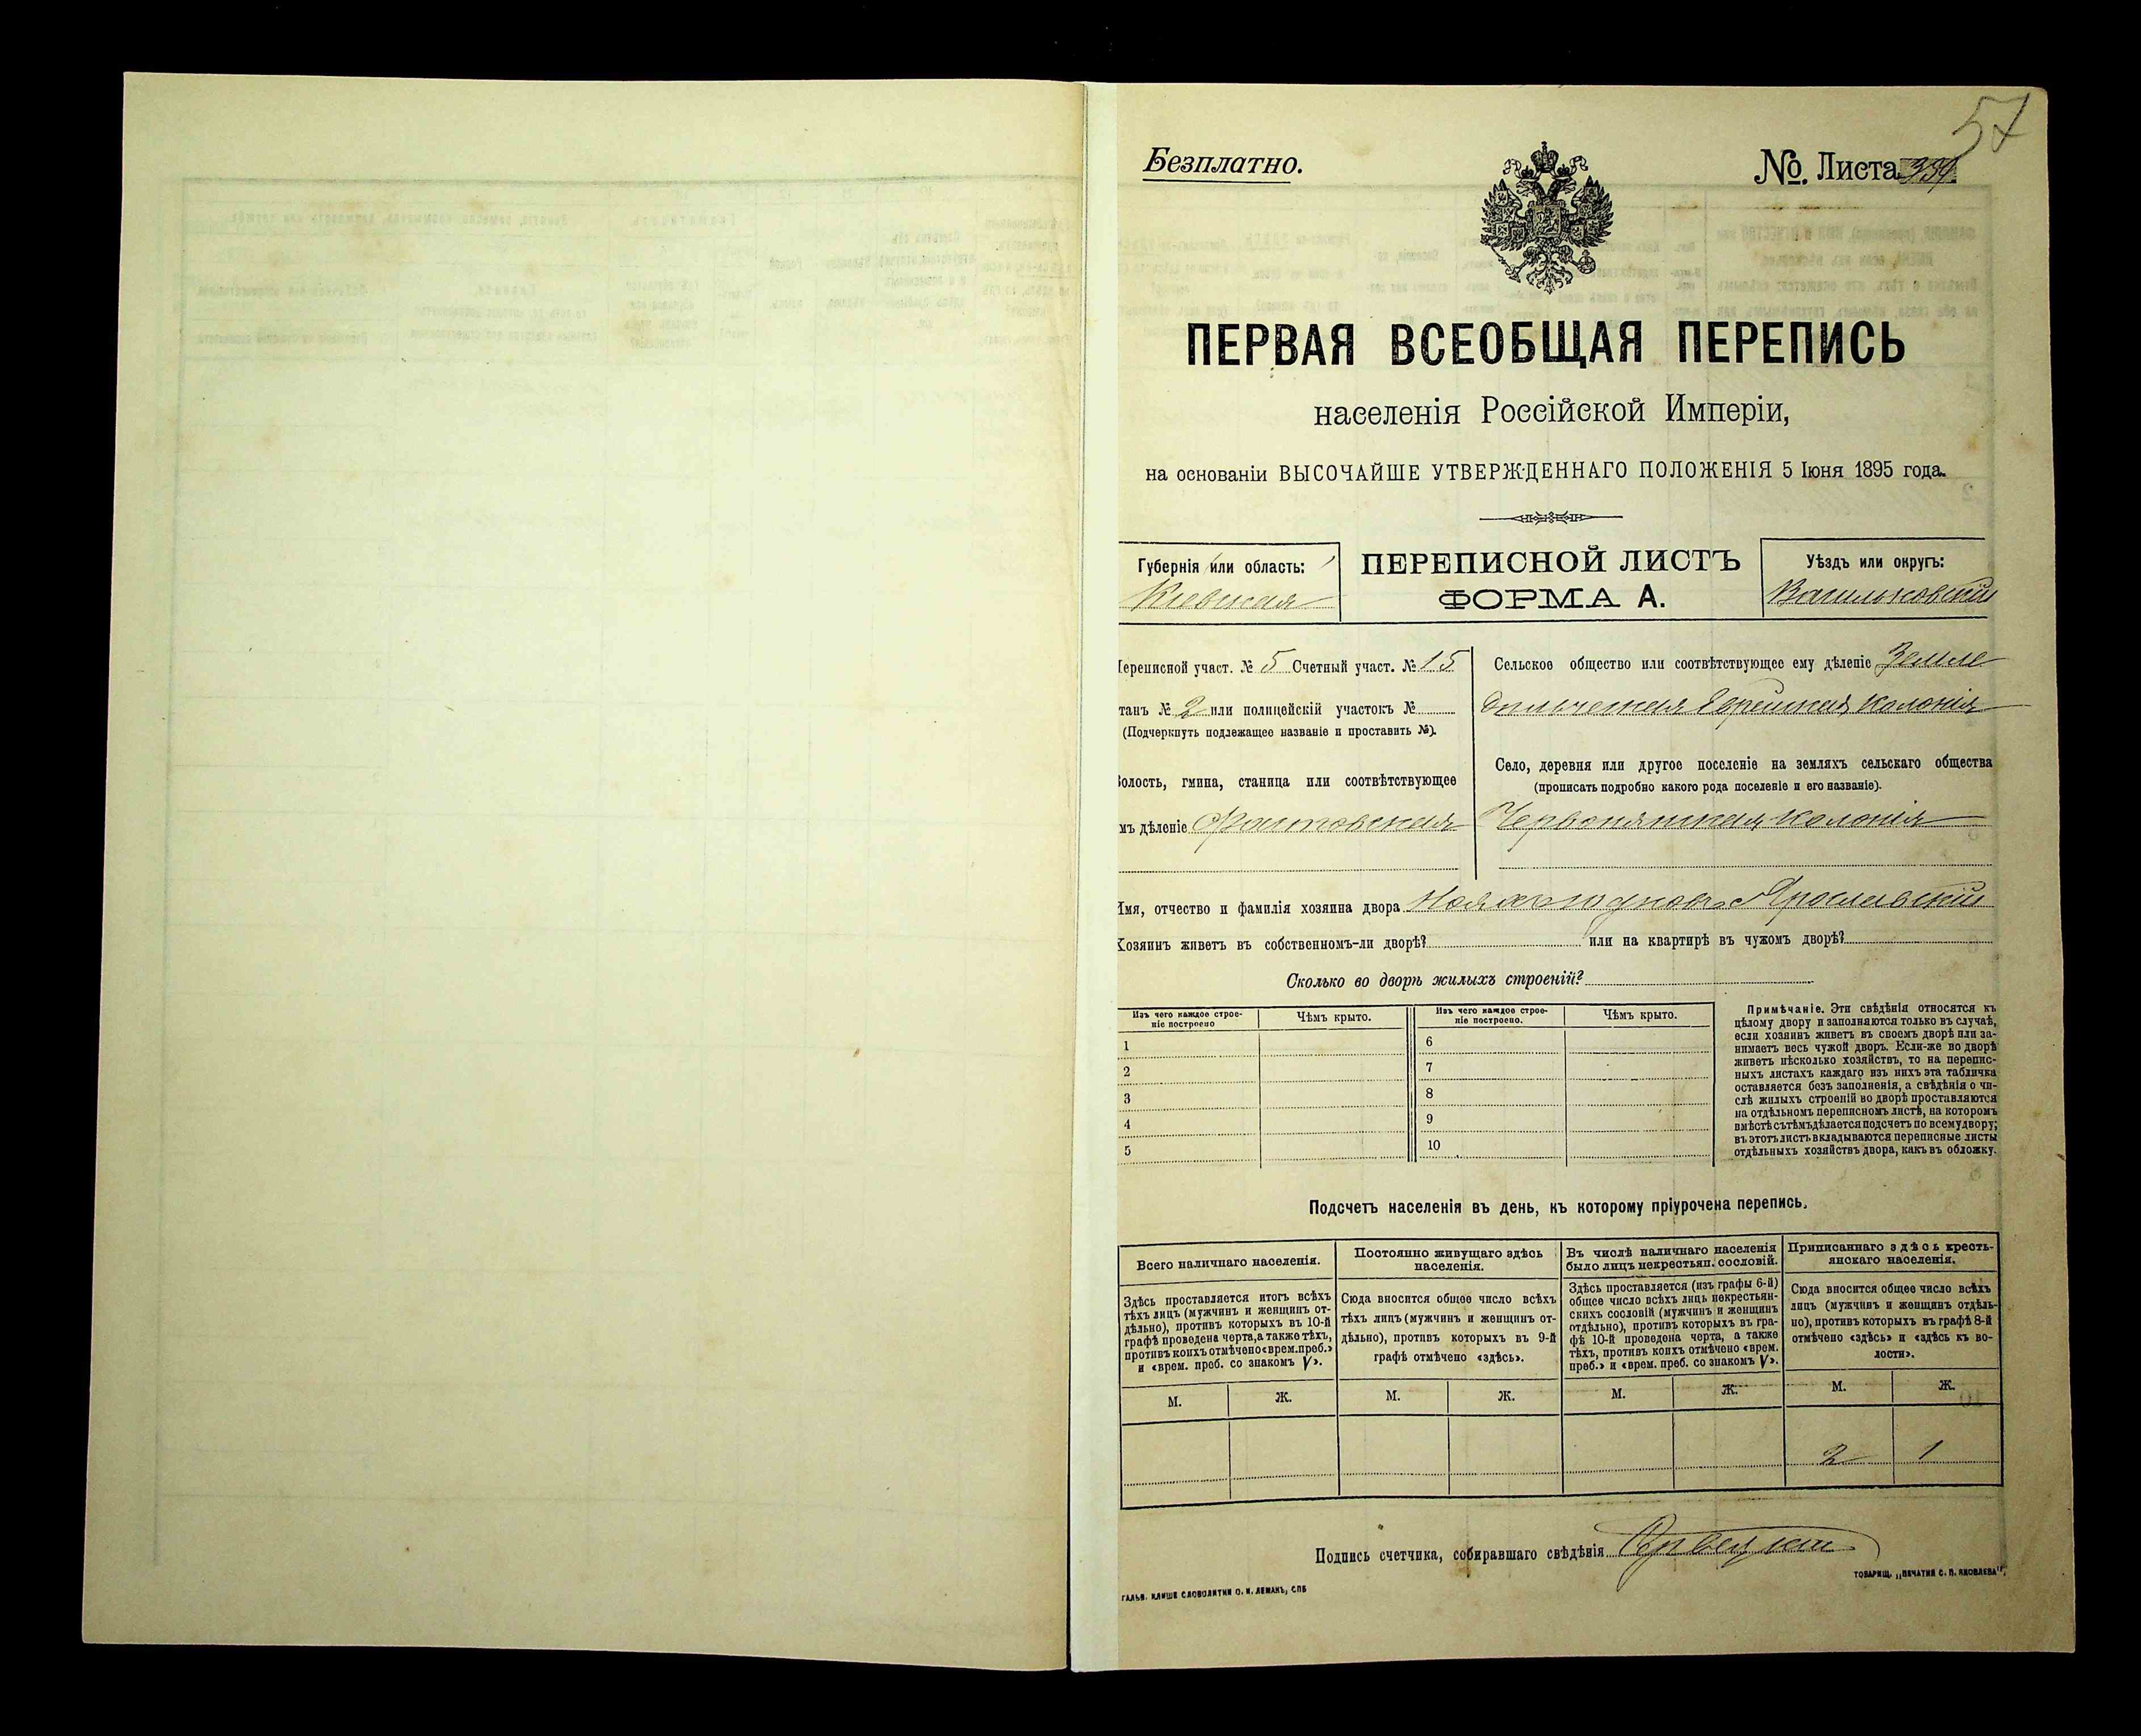 57
Безплатно.
№. Листа 359.
ПЕРВАЯ ВСЕОБЩАЯ ПЕРЕПИСЬ
населенія Россійской Имперіи,
на основаніи ВЫСОЧАЙШЕ УТВЕРЖДЕННАГО ПОЛОЖЕНІЯ 5 Іюня 1895 года.
Губернія или область:
Кіевская
ПЕРЕПИСНОЙ ЛИСТЪ
ФОРМА А.
Уѣздъ или округъ:
Васильковскій
Переписной участ. № 5 Счетный участ. № 15
танъ № 2 или полицейскій участокъ №
(Подчеркнуть подлежащее названіе и проставить №).
Волость, гмина, станица или соотвѣтствующее
мъ дѣленіе Фастовская
Сельское общество или соотвѣтствующее ему дѣленіе Земле
дѣльческая Еврейская колонія
Село, деревня или другое поселеніе на земляхъ сельскаго общества
(прописать подробно какого рода поселеніе и его названіе).
Червонянская колонія
Имя, отчество и фамилія хозяина двора Ярославскій
Хозяинъ живетъ въ собственномъ-ли дворѣ? или на квартирѣ въ чужомъ дворѣ?
Сколько во дворѣ жилыхъ строеній?
Изъ чего каждое строе-
ніе построено
Чѣмъ крыто.
1
2
3
4
5
Изъ чего каждое строе-
ніе построено.
Чѣмъ крыто.
6
7
8
9
10
Примѣчаніе. Эти свѣдѣнія относятся къ
цѣлому двору и заполняются только въ случаѣ,
если хозяинъ живетъ въ своемъ дворѣ или за-
нимаетъ весь чужой дворъ. Если-же во дворѣ
живетъ нѣсколько хозяйствъ, то на перепис-
ныхъ листахъ каждаго изъ нихъ эта табличка
оставляется безъ заполненія, а свѣдѣнія о чи-
слѣ жилыхъ строеній во дворѣ проставляются
на отдѣльномъ переписномъ листѣ, на которомъ
вмѣстѣ съ тѣмъ дѣлается подсчетъ по всему двору;
въ этотъ листъ вкладываются переписные листы
отдѣльныхъ хозяйствъ двора, какъ въ обложку.
Подсчетъ населенія въ день, къ которому пріурочена перепись.
Всего наличнаго населенія.
Здѣсь проставляется итогъ всѣхъ
тѣхъ лицъ (мужчинъ и женщинъ от-
дѣльно), противъ которыхъ въ 10-й
графѣ проведена черта, а также тѣхъ,
противъ коихъ отмѣчено «врем. преб.»
и «врем. преб. со знакомъ V».
М. Ж.
Постоянно живущаго здѣсь
населенія.
Сюда вносится общее число всѣхъ
тѣхъ лицъ (мужчинъ и женщинъ от-
дѣльно), противъ которыхъ въ 9-й
графѣ отмѣчено «здѣсь».
М. Ж.
Въ числѣ наличнаго населенія
было лицъ некрестьян. сословій.
Здѣсь проставляется (изъ графы 6-й)
общее число всѣхъ лицъ некрестьян-
скихъ сословій (мужчинъ и женщинъ
отдѣльно), противъ которыхъ въ гра-
фѣ 10-й проведена черта, а также
тѣхъ, противъ коихъ отмѣчено «врем.
преб.» и «врем. преб. со знакомъ V».
М. Ж.
Приписаннаго здѣсь кресть-
янскаго населенія.
Сюда вносится общее число всѣхъ
лицъ (мужчинъ и женщинъ отдѣль-
но), противъ которыхъ въ графѣ 8-й
отмѣчено «здѣсь» и «здѣсь къ во-
лости».
М. Ж.
2 1
Подпись счетчика, собиравшаго свѣдѣнія
ГАЛЬВ. КЛИШЕ СЛОВОЛИТНИ О. И. ЛЕМАНЪ, СПБ
ТОВАРИЩ. „ПЕЧАТНЯ С. П. ЯКОВЛЕВА“.